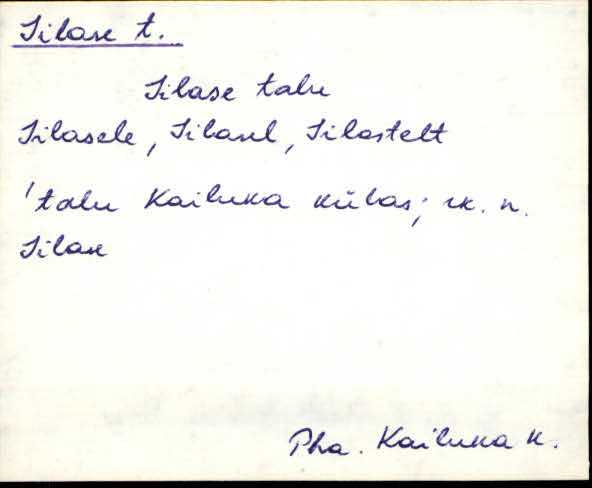 Silase t.
Silase talu
Silasele, Silasel, Silastelt
'talu Kailuka külas; rk. n.
Silase
Pha. Kailuka k.